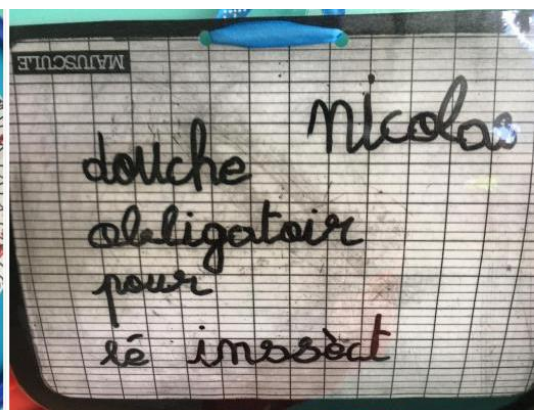 MAJUSCULE
nicolas
douche
obligatoir
pour
lé inssèct